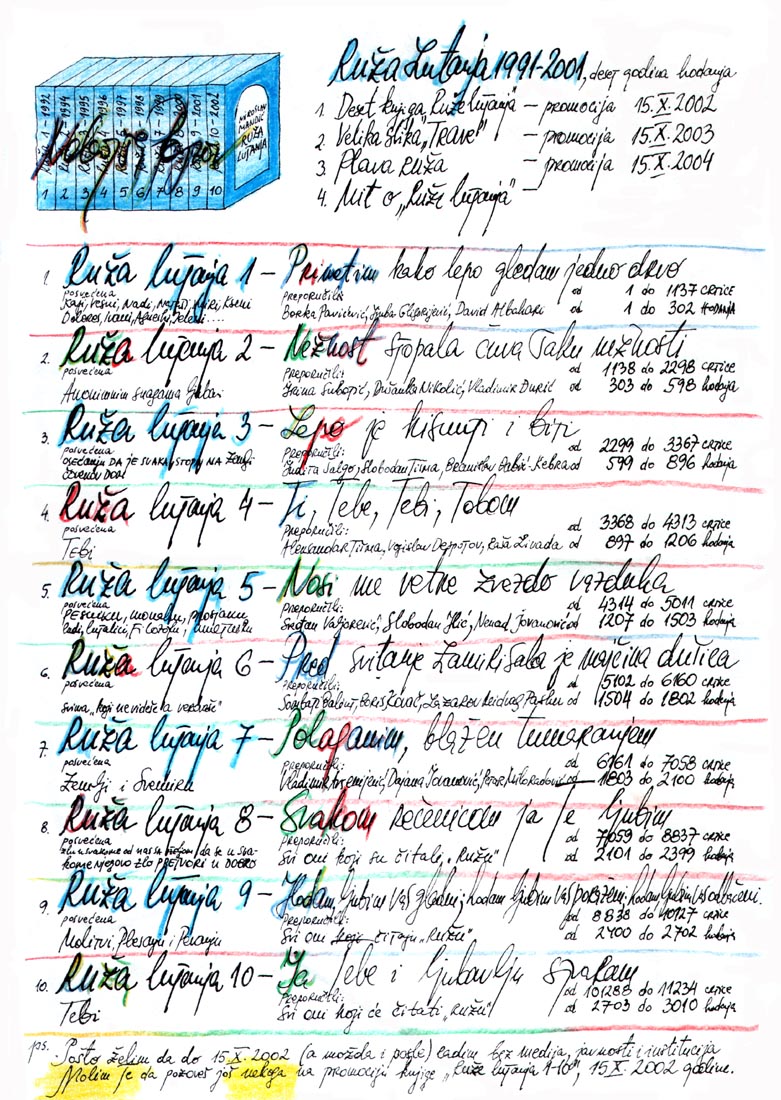 Ruža Lutanja 1991-2001, deset godina hodanja
1. Deset knjiga „Ruže lutanja" – promocija 15.X.2002
2. Velika slika „TRAVE" – promocija 15.X.2003
3. PLAVA RUŽA – promocija 15.X.2004
4. Mit o „Ruži lutanja" –
MIROSLAV
MANDIĆ
RUŽA
LUTANJA
1 2 3 4 5 6 7 8 9 10
1. Ruža lutanja 1 – Primetim kako lepo gledam jedno drvo
posvećena
preporučili: od 1 do 1137 crtice
Borka Pavićević, David Albahari od 1 do 302 HODANJA
2. Ruža lutanja 2 – Nežnost stopala čuva Taku nežnosti
posvećena
preporučili: od 1138 do 2298 crtice
Anonimnim snagama ljubavi
Irina Subotić, Dušanka Nikolić, Vladimir Đurić od 303 do 598 hodanja
3. Ruža lutanja 3 – Lepo je kisnuti i biti
posvećena
preporučili: 2299 do 3367 crtice
OSEĆANJU DA JE SVAKA STOPA NA Zemlji
Judita Šalgo, Slobodan Tišma, Branislav od 599 do 896 hodanja
4. Ruža lutanja 4 – Ti, Tebe, Tebi, Tobom
posvećena
preporučili: od 3368 do 4313 crtice
Tebi
Aleksandar Tišma, Vojislav Despotov, Raša Livada od 897 do 1206 hodanja
5. Ruža lutanja 5 – Nosi me vetre zvezdo vazduha
posvećena
preporučili: od 4314 do 5011 crtice
Slobodan Ilić, Nenad Jovanović od 1207 do 1503 hodanja
6. Ruža lutanja 6 – Pred svitanje zamirisala je majčina dušica
posvećena
preporučili: od 5102 do 6160 crtice
svima „koji ne videše a verovaše"
Boris Kovač, od 1504 do 1802 hodanja
7. Ruža lutanja 7 – Polaganim, blažen tumaranjem
posvećena
preporučili: od 6161 do 7058 crtice
Zemlji i Svemiru
Dajana Jovanović, Petar Miloradović od 1803 do 2100 hodanja
8. Ruža lutanja 8 – Svakom rečenicom ja Te ljubim
posvećena
preporučili: od 7059 do 8837 crtice
zlu u svakome od nas sa da se u sva-
kome njegovo zlo PRETVORI u DOBRO
Svi oni koji su čitali „Ružu" od 2101 do 2399 hodanja
9. Ruža lutanja 9 – Hodam, ljubim vas gladni; hodam ljubim vas poniženi; hodam ljubim vas odbačeni.
posvećena
preporučili: od 8838 do 10127 crtice
Molitvi, Plesanju i Pevanju
Svi oni koji čitaju „Ružu" od 2400 do 2702 hodanja
10. Ruža lutanja 10 – Ja Tebe i ljubavlju svakom
posvećena
preporučili: od 101288 do 11234 crtice
Tebi
Svi oni koji će čitati „Ružu" od 2703 do 3010 hodanja
ps. Pošto želim da do 15.X.2002 (a možda i posle) radim bez medija, javnosti i institucija
Molim te da pozoveš još nekoga na promociju knjige „Ruže lutanja 1-10", 15.X.2002 godine.